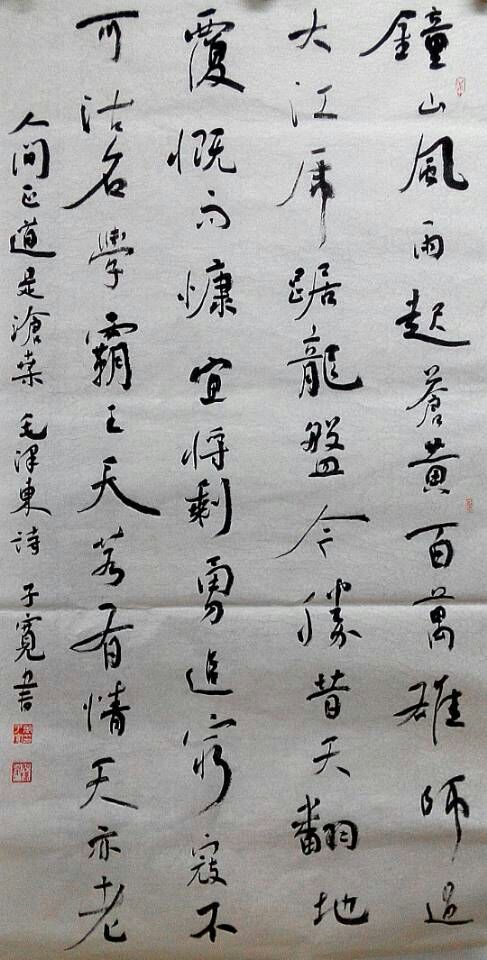 鐘山風雨起蒼黄百萬雄師過
大江虎踞龍盤今勝昔天翻地
覆慨而慷宜将剩勇追窮寇不
可沽名學霸王天若有情天亦老
人間正道是滄桒 毛澤東詩 子寬書